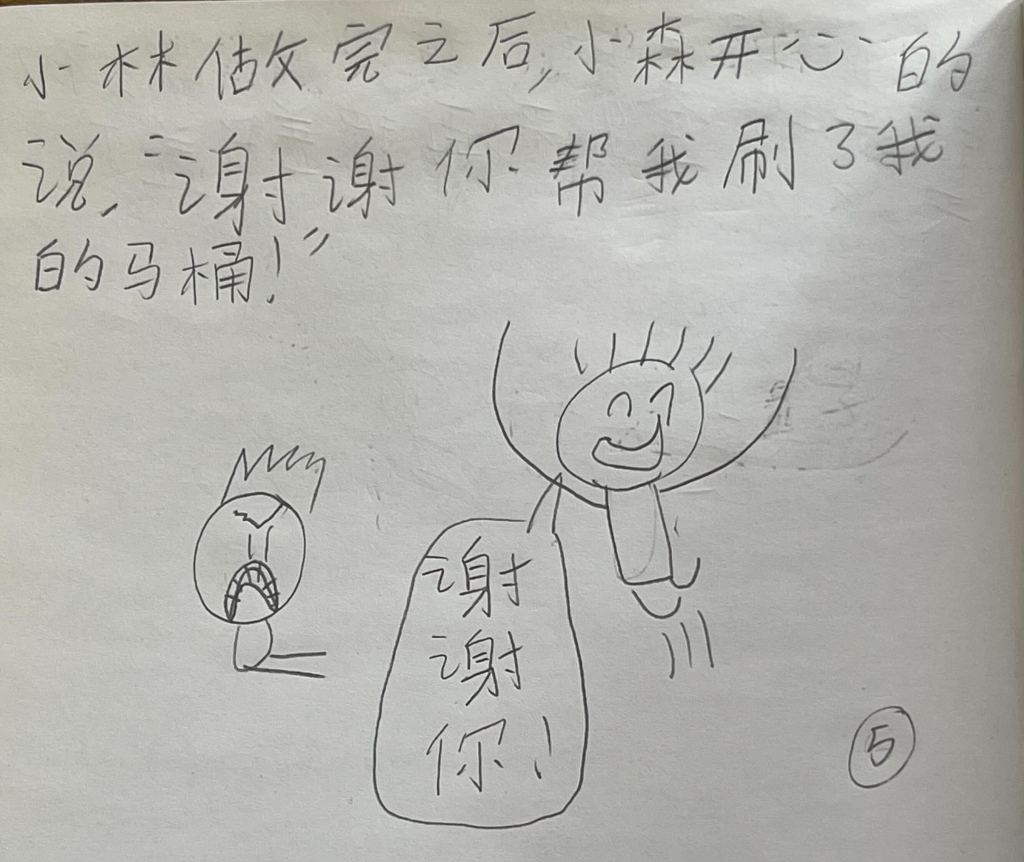 小林做完之后,小森开心的
说,“谢谢你帮我刷了我
的马桶!”
谢
谢
你!
5